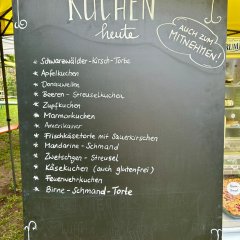 KUCHEN
heute
AUCH ZUM
MITNEHMEN!
* Schwarzwälder-Kirsch-Torte
* Apfelkuchen
* Donauwellen
* Beeren - Streuselkuchen
* Zupfkuchen
* Marmorkuchen
* Amerikaner
* Frischkäsetorte mit Sauerkirschen
* Mandarine - Schmand
* Zwetschgen - Streusel
* Käsekuchen (auch glutenfrei)
* Feuerwehrkuchen
* Birne - Schmand - Torte